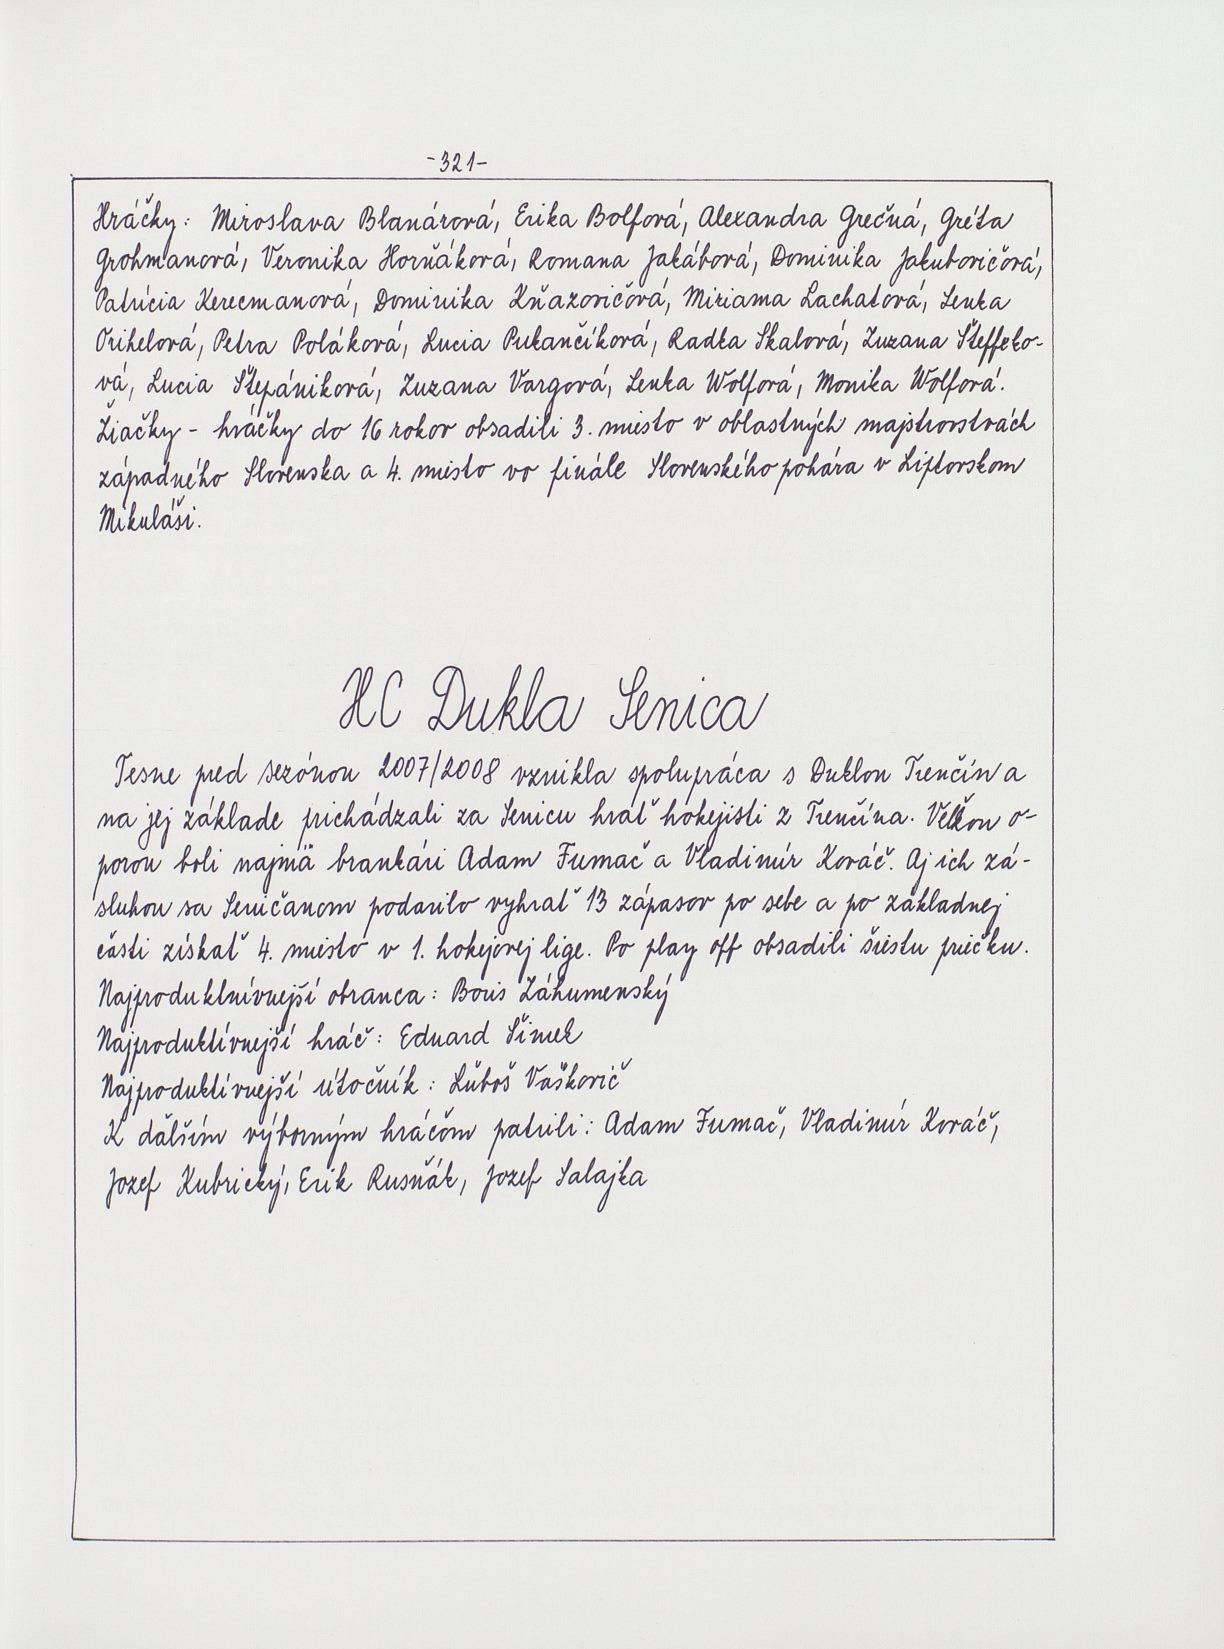 -321-
Hráčky: Miroslava Blanárová, Erika Bolfová, Alexandra Grečná, Gréta
Grohmanová, Veronika Horňáková, Romana Jakábová, Dominika Jakubovičová,
Patrícia Kerecmanová, Dominika Kňazovičová, Miriama Lachatová, Lenka
Orihelová, Petra Poláková, Lucia Pukančíková, Radka Skalová, Zuzana Šteffeko-
vá, Lucia Štepániková, Zuzana Vargová, Lenka Wolfová, Monika Wolfová.
Žiačky - hráčky do 16 rokov obsadili 3. miesto v oblastných majstrovstvách
západného Slovenska a 4. miesto vo finále Slovenského pohára v Liptovskom
Mikuláši.
HC Dukla Senica
Tesne pred sezónou 2007/2008 vznikla spolupráca s Duklou Trenčín a
na jej základe prichádzali za Senicu hrať hokejisti z Trenčína. Veľkou o-
porou boli najmä brankári Adam Fumač a Vladimír Kováč. Aj ich zá-
sluhou sa Seničanom podarilo vyhrať 13 zápasov po sebe a po základnej
časti získať 4. miesto v 1. hokejovej lige. Po play off obsadili šiestu priečku.
Najproduktnívnejší obranca: Boris Záhumenský
Najproduktívnejší hráč: Eduard Šimek
Najproduktívnejší útočník: Ľuboš Vaškovič
K ďalším výborným hráčom patrili: Adam Fumač, Vladimír Kováč,
Jozef Kubrický, Erik Rusňák, Jozef Salajka